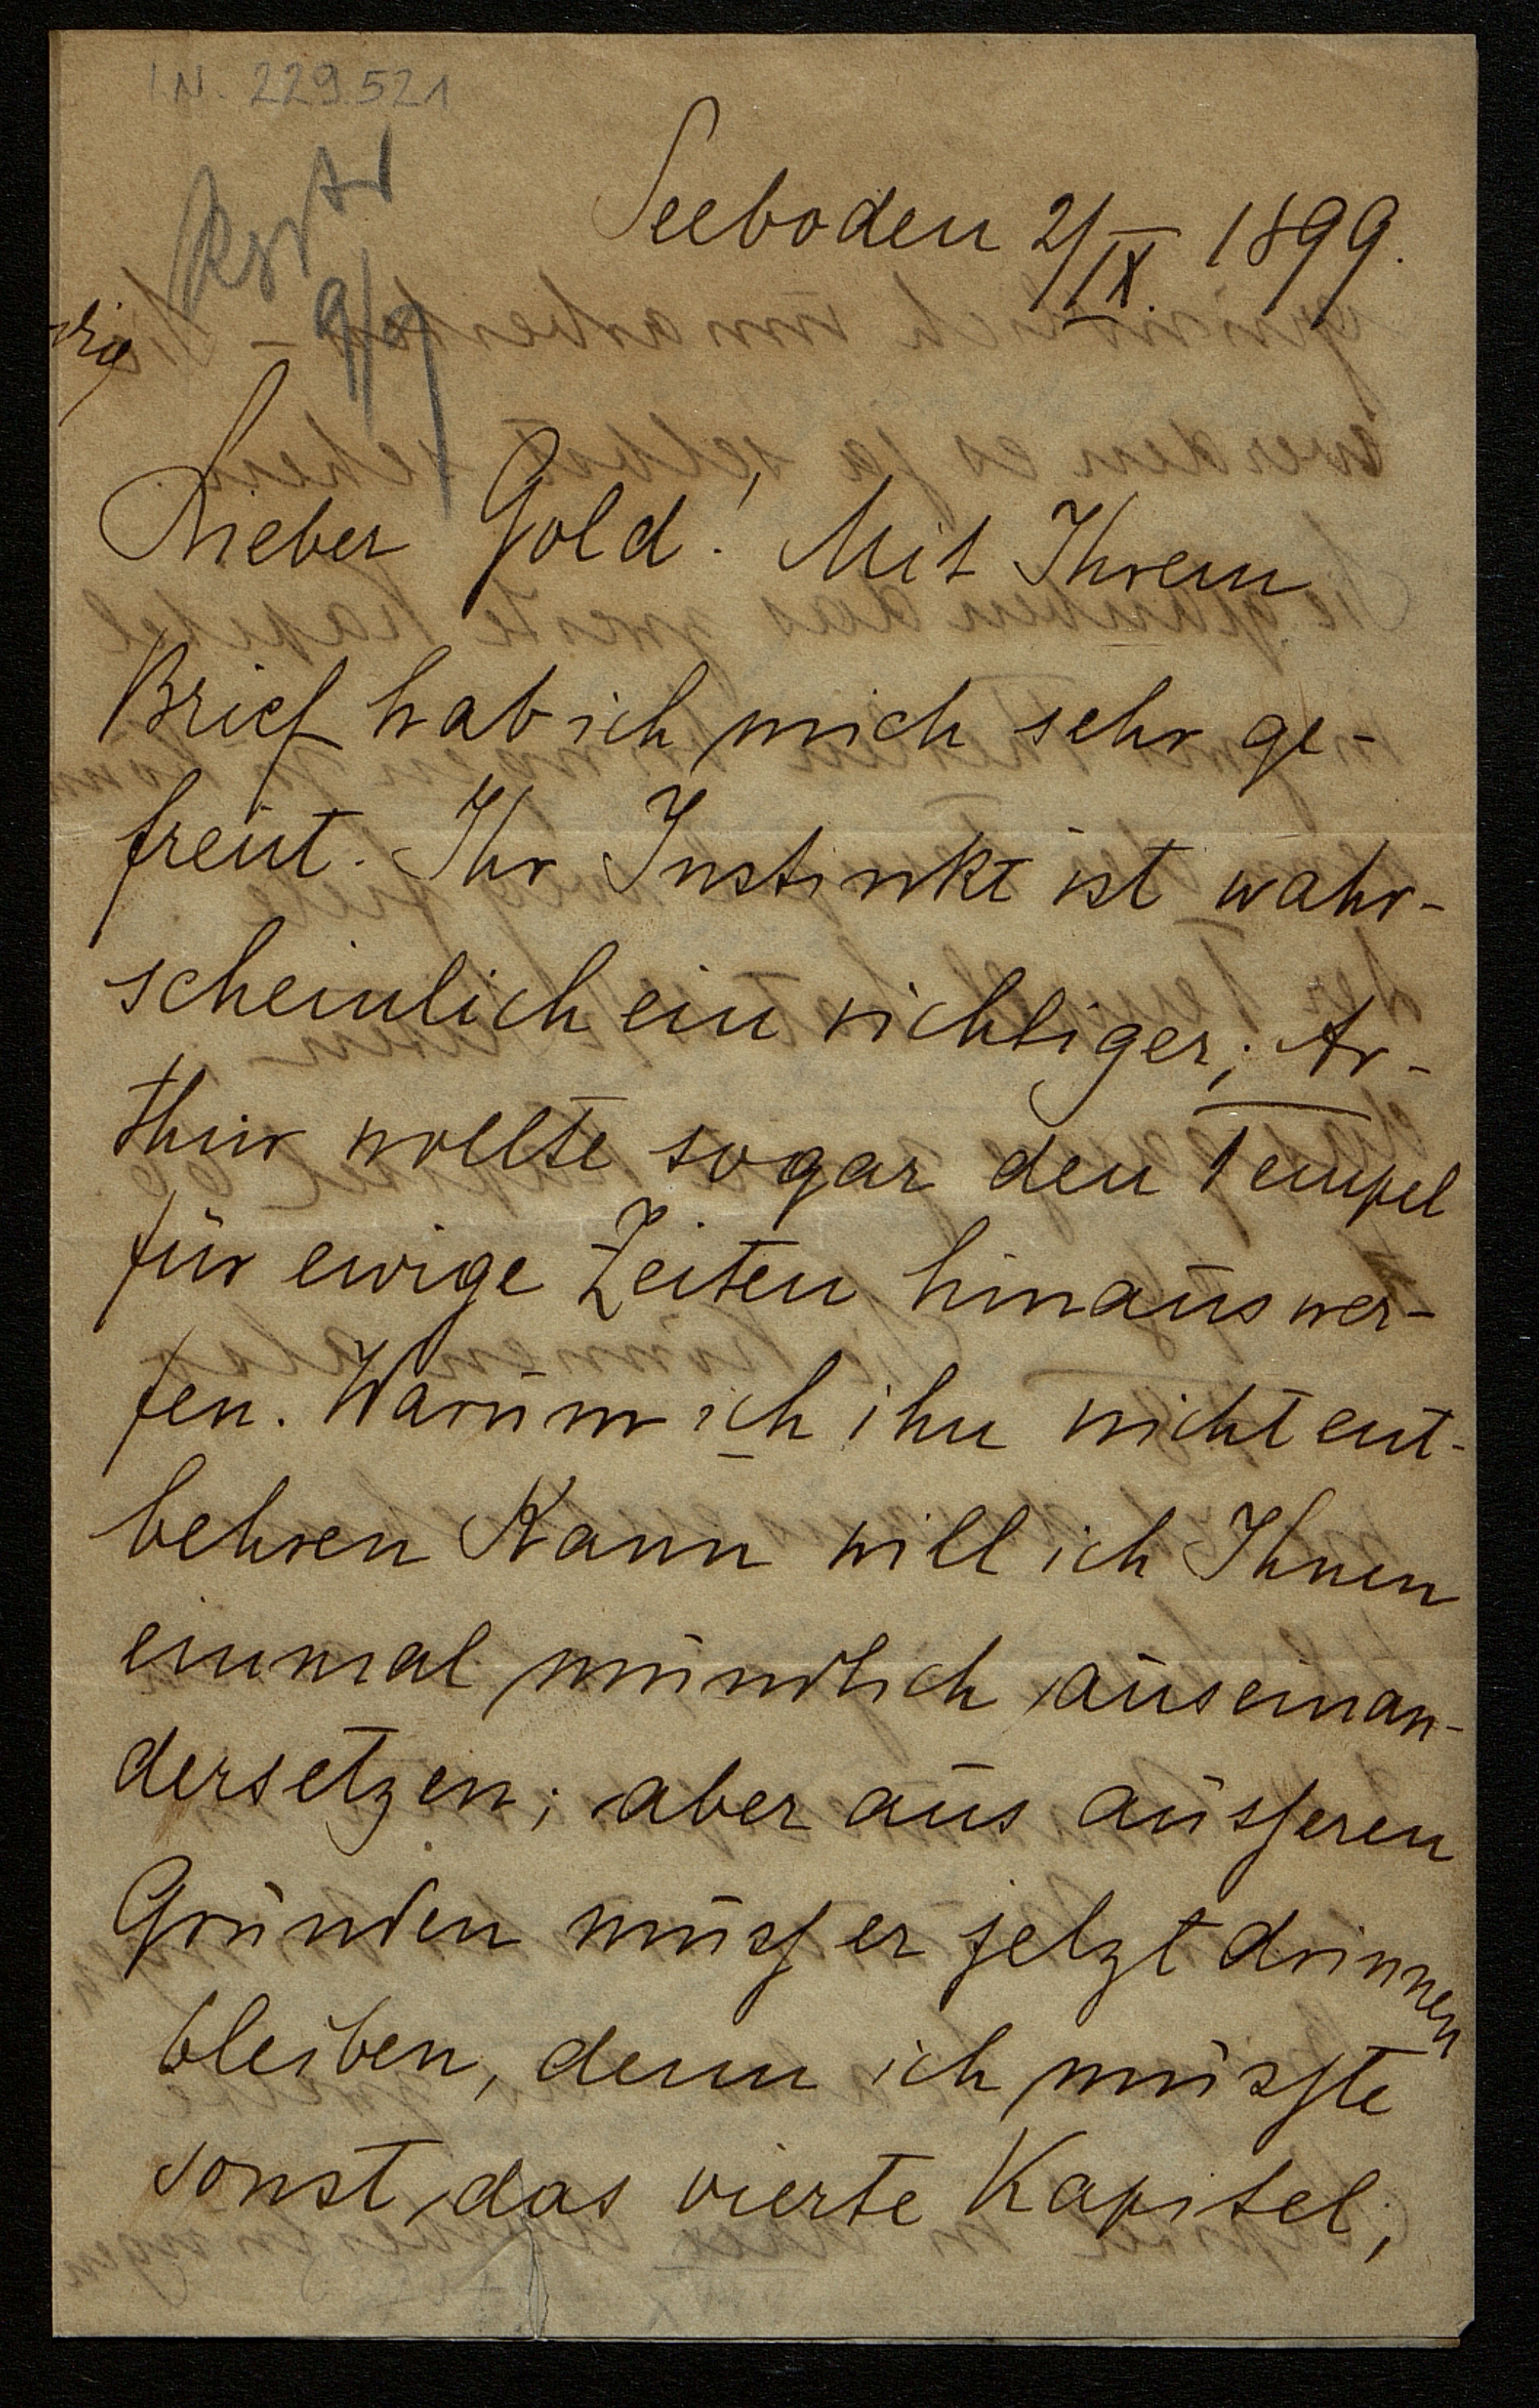 I.N. 229.521
Seeboden 2/IX. 1899.
9/9
Lieber Gold! Mit Ihrem
Brief hab ich mich sehr ge-
freut. Ihr Instinkt ist wahr-
scheinlich ein richtiger; Ar-
thur wollte sogar den Tempel
für ewige Zeiten hinauswer-
fen. Warum ich ihn nicht ent-
behren kann will ich Ihnen
einmal mündlich auseinan-
dersetzen; aber aus äusseren
Gründen muss er jetzt drinnen
bleiben, denn ich müsste
sonst das vierte Kapitel,